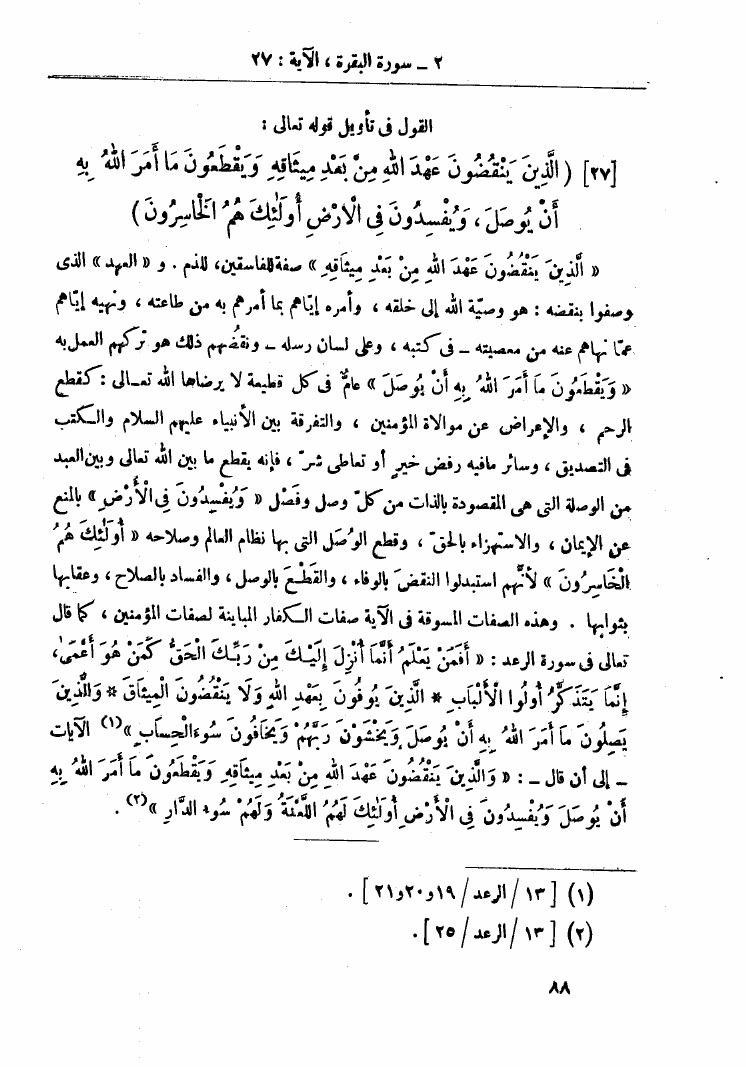 ٢ ـ سورة البقرة ، الآية : ٢٧
القول فى تأويل قوله تعالى :
[٢٧] ( الَّذِينَ يَنْقُضُونَ عَهْدَ اللهِ مِنْ بَعْدِ مِيثَاقِهِ وَيَقْطَعُونَ مَا أَمَرَ اللهُ بِهِ
أَنْ يُوصَلَ ، وَيُفْسِدُونَ فِى الْأَرْضِ أُولَٰئِكَ هُمُ الْخَاسِرُونَ )
« الَّذِينَ يَنْقُضُونَ عَهْدَ اللهِ مِنْ بَعْدِ مِيثَاقِهِ » صفة للفاسقين، للذم . و « العهد » الذى
وصفوا بنقضه : هو وصيّة الله إلى خلقه ، وأمره إيّاهم بما أمرهم به من طاعته ، ونهيه إيّاهم
عمّا نهاهم عنه من معصيته ـ فى كتبه ، وعلى لسان رسله ـ ونقضُهم ذلك هو تركهم العمل به
« وَيَقْطَعُونَ مَا أَمَرَ اللهُ بِهِ أَنْ يُوصَلَ » عامٌّ فى كل قطيعة لا يرضاها الله تعالى : كقطع
الرحم ، والإعراض عن موالاة المؤمنين ، والتفرقة بين الأنبياء عليهم السلام والكتب
فى التصديق ، وسائر مافيه رفض خيرٍ أو تعاطى شرّ ، فإنه يقطع ما بين الله تعالى وبين العبد
من الوصلة التى هى المقصودة بالذات من كلّ وصل وفَصْل « وَيُفْسِدُونَ فِى الْأَرْضِ » بالمنع
عن الإيمان ، والاستهزاء بالحقّ ، وقطع الوُصَل التى بها نظام العالم وصلاحه « أُولَٰئِكَ هُمُ
الْخَاسِرُونَ » لأنّهم استبدلوا النقض بالوفاء ، والقَطْع بالوصل ، والفساد بالصلاح ، وعقابها
بثوابها . وهذه الصفات المسوقة فى الآية صفات الكفار المباينة لصفات المؤمنين ، كما قال
تعالى فى سورة الرعد : « أَفَمَنْ يَعْلَمُ أَنَّمَا أُنْزِلَ إِلَيْكَ مِنْ رَبِّكَ الْحَقُّ كَمَنْ هُوَ أَعْمَىٰ ،
إِنَّمَا يَتَذَكَّرُ أُولُوا الْأَلْبَابِ * الَّذِينَ يُوفُونَ بِعَهْدِ اللهِ وَلَا يَنْقُضُونَ الْمِيثَاقَ * وَالَّذِينَ
يَصِلُونَ مَا أَمَرَ اللهُ بِهِ أَنْ يُوصَلَ وَيَخْشَوْنَ رَبَّهُمْ وَيَخَافُونَ سُوءَ الْحِسَابِ »(١) الآيات
ـ إلى أن قال ـ : « وَالَّذِينَ يَنْقُضُونَ عَهْدَ اللهِ مِنْ بَعْدِ مِيثَاقِهِ وَيَقْطَعُونَ مَا أَمَرَ اللهُ بِهِ
أَنْ يُوصَلَ وَيُفْسِدُونَ فِى الْأَرْضِ أُولَٰئِكَ لَهُمُ اللَّعْنَةُ وَلَهُمْ سُوءُ الدَّارِ »(٢) .
(١) [ ١٣ / الرعد / ١٩ و ٢٠ و ٢١ ] .
(٢) [ ١٣ / الرعد / ٢٥ ] .
٨٨